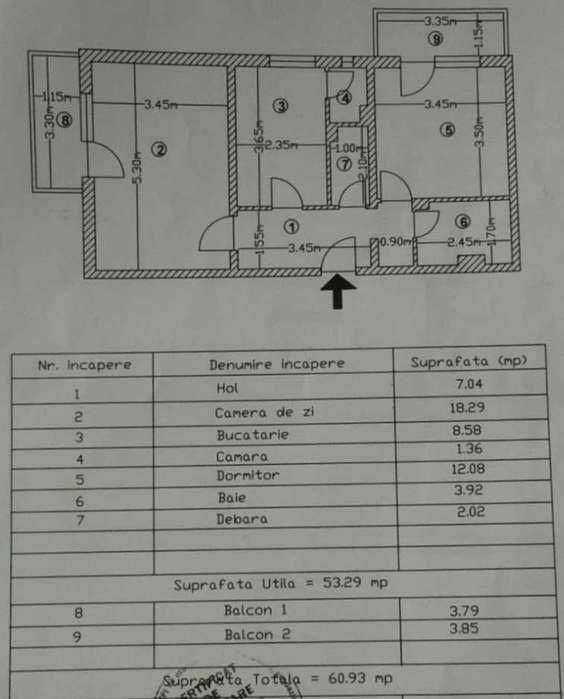 3.35m
⑨
1.15m
1.15m
3.30m
⑧
3.45m
②
5.30m
③
3.65m
2.35m
④
1.00m
⑦
2.10m
3.45m
⑤
3.50m
①
1.55m
3.45m
0.90m
⑥
2.45m
1.70m
Nr. incapere Denumire incapere Suprafata (mp)
1 Hol 7.04
2 Camera de zi 18.29
3 Bucatarie 8.58
4 Camara 1.36
5 Dormitor 12.08
6 Baie 3.92
7 Debara 2.02
Suprafata Utila = 53.29 mp
8 Balcon 1 3.79
9 Balcon 2 3.85
Suprafata Totala = 60.93 mp